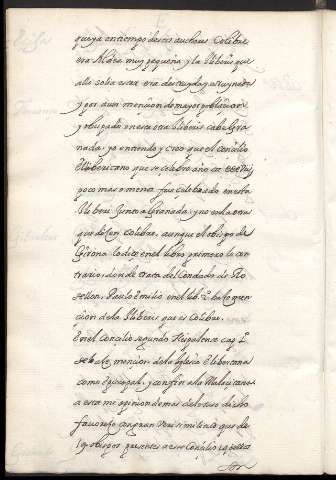 que ya en tiempo destos auctores Colibre
era Aldea muy pequeña y la Iliberis que
alli solia estar era destruyda y arruynada
y por auer mencion de mayor poblacion
y obispado en esta otra Iliberis cabe Gra
nada, yo entiendo y creo que el Concilio
Eliberitano que se celebro año
poco mas o menos fue celebrado en esta
Iliberi junto a Granada, y no en la otra
que dicen Colibre, aunque el obispo de
Girona lo dize en el libro primero lo con
trario, donde trata del Condado de Ro
sellon, Paulo Emilio en el lib. 2. haze men
cion de la Iliberis que es Colibre.
En el Concilio segundo Hispalense cap. 1.
se haze mencion de la Iglesia Eliberitana
como Episcopal, y confin a la Malacitana
a esta mi opinion demas de lo suso dicho
favorece con gran verisimilitud que de
19 obispos presentes a este Concilio, los
son